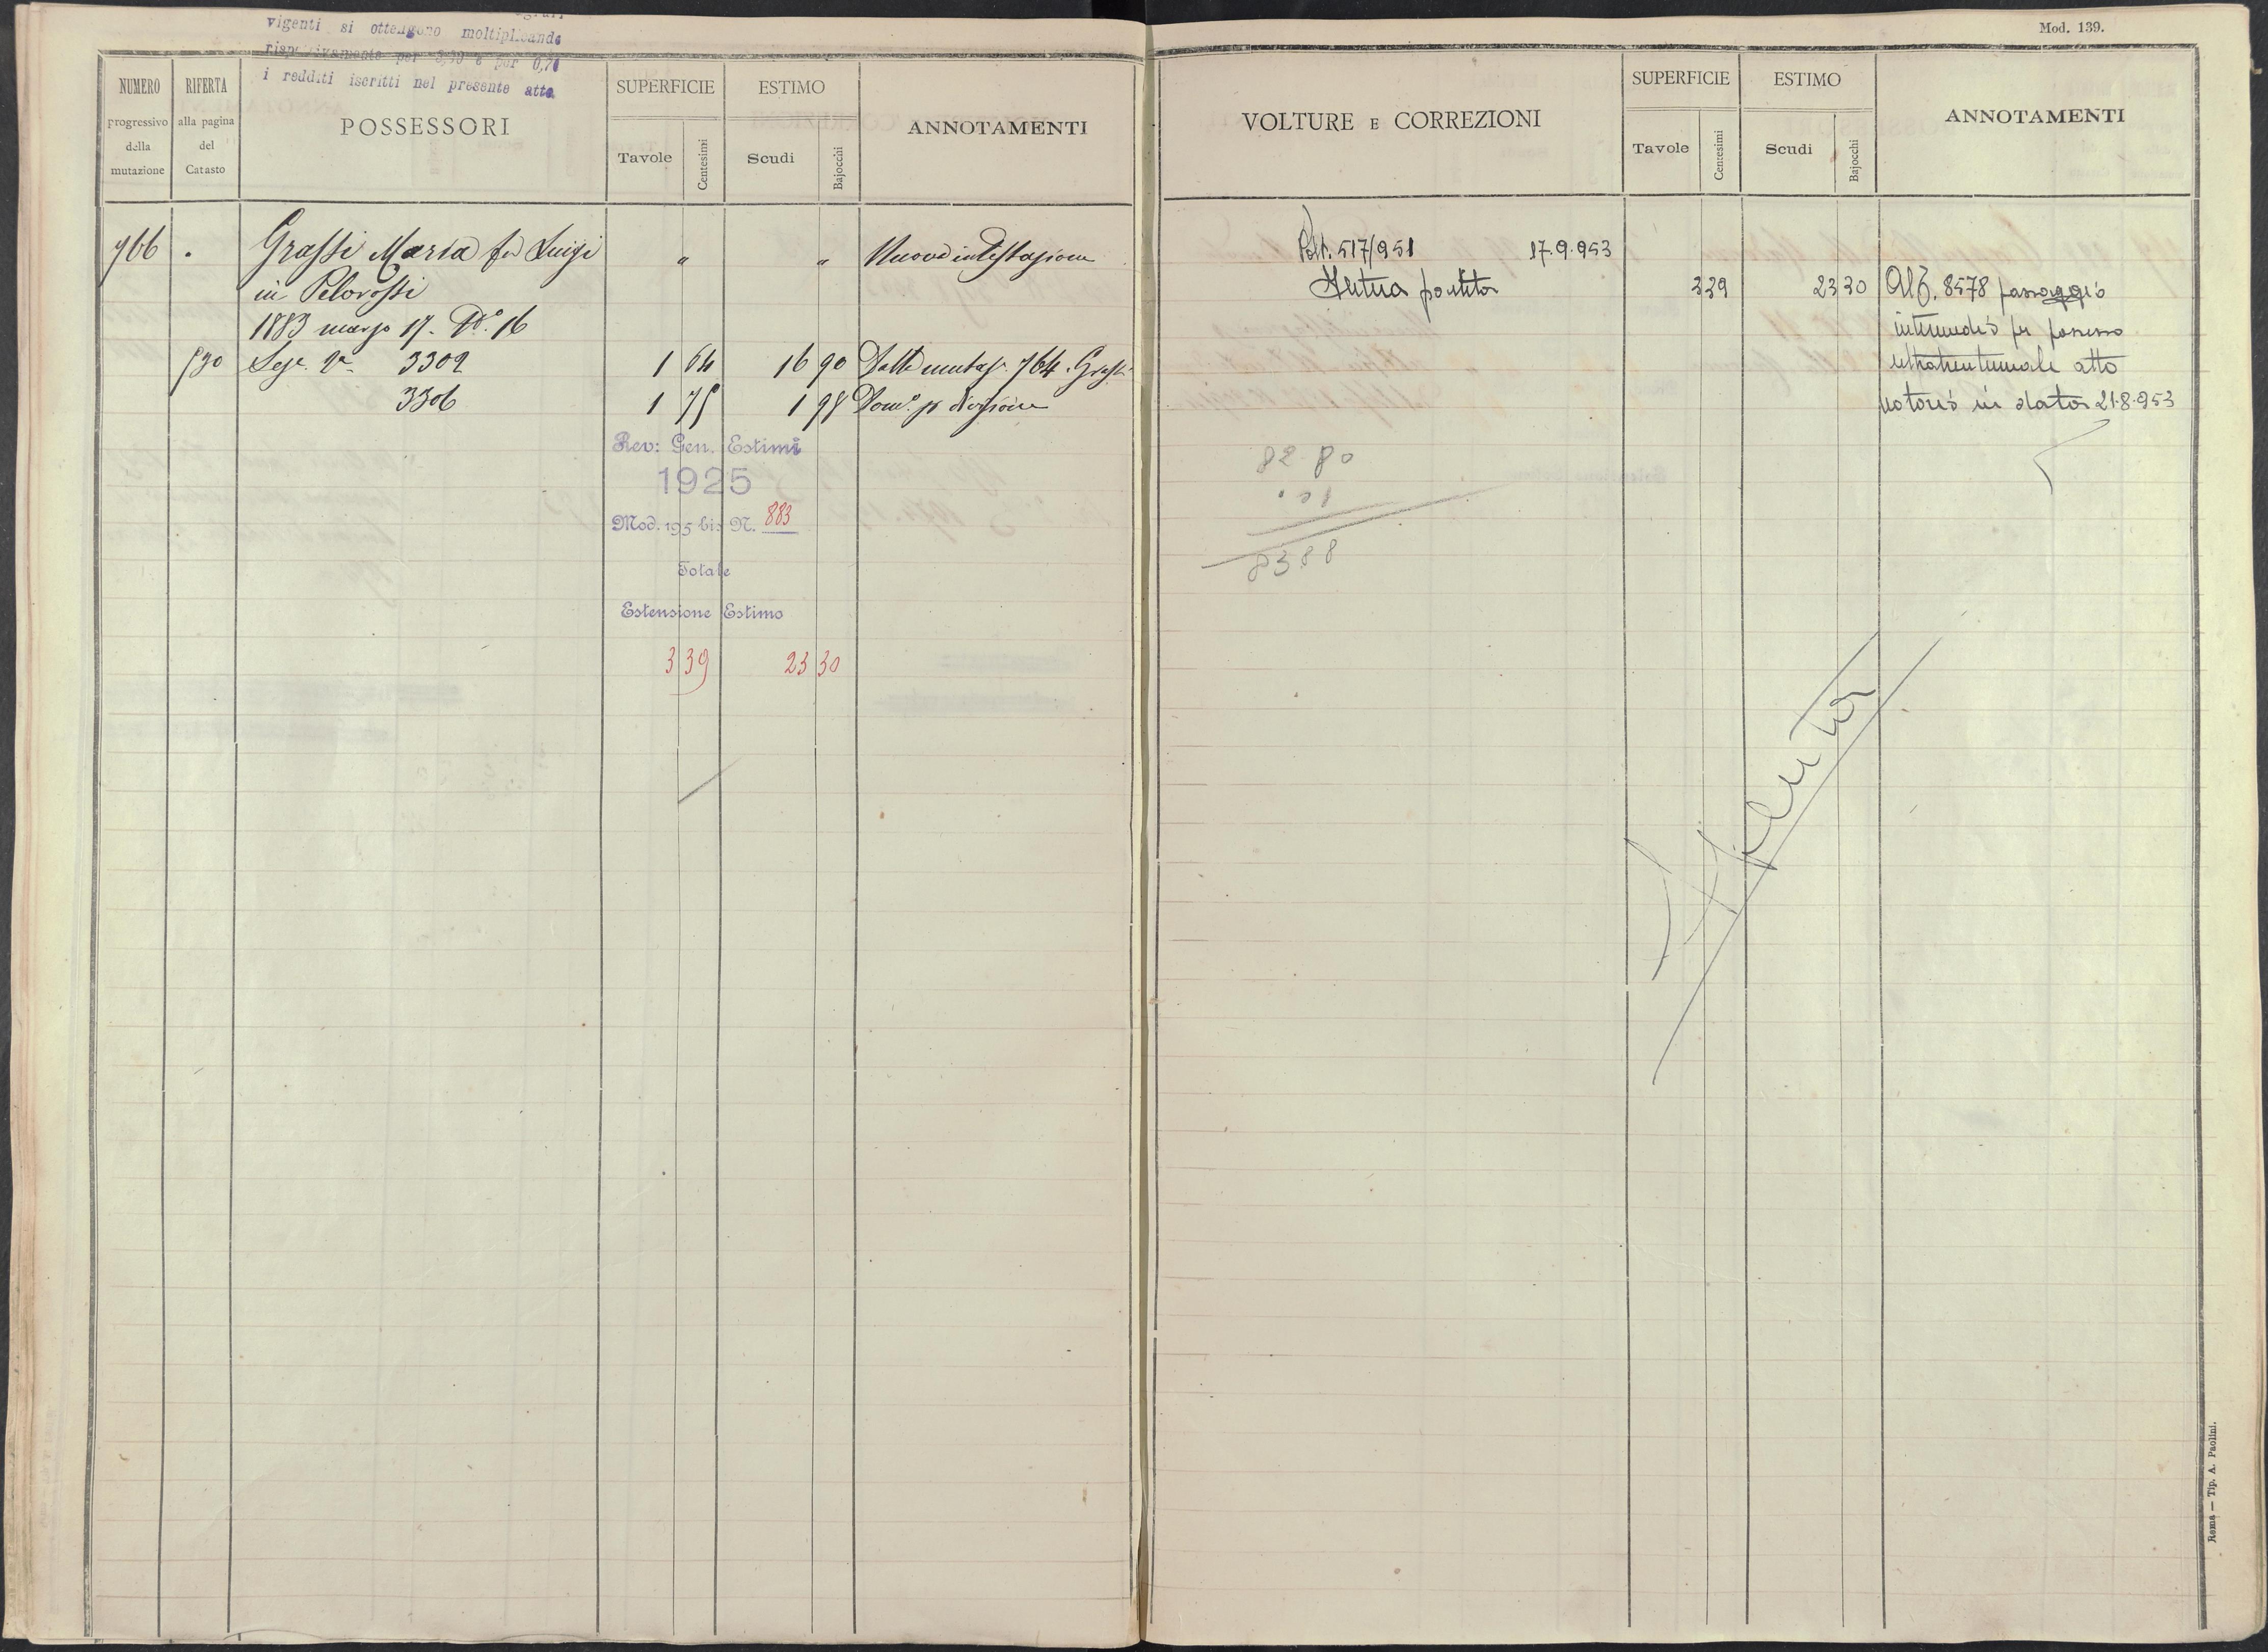 vigenti si ottengono moltiplicando
rispettivamente per 3,39 e per 0,70
i redditi iscritti nel presente atto
NUMERO
progressivo
della
mutazione
RIFERTA
alla pagina
del
Catasto
POSSESSORI
SUPERFICIE
Tavole
Centesimi
ESTIMO
Scudi
Bajocchi
ANNOTAMENTI
766 Grassi Maria fu Luigi " " Nuova intestazione
in Pelorossi
1883 marzo 17. N.º 16
530 Sez. 2ª 3302 1 64 16 90 Dalla mutaz. 764. Grassi
3306 1 75 1 98 Dom.º p divisione
Rev: Gen. Estimi
1925
Mod. 195 bis N. 883
Totale
Estensione Estimo
3 39 23 30
Mod. 139.
VOLTURE E CORREZIONI
SUPERFICIE
Tavole
Centesimi
ESTIMO
Scudi
Bajocchi
ANNOTAMENTI
517/951 17.9.953
partita 339 23 30 8578 passaggio
intermedio per possesso
ultratrentennale atto
notorio in data 21.8.953
82 80
83 88
Roma — Tip. A. Paolini.